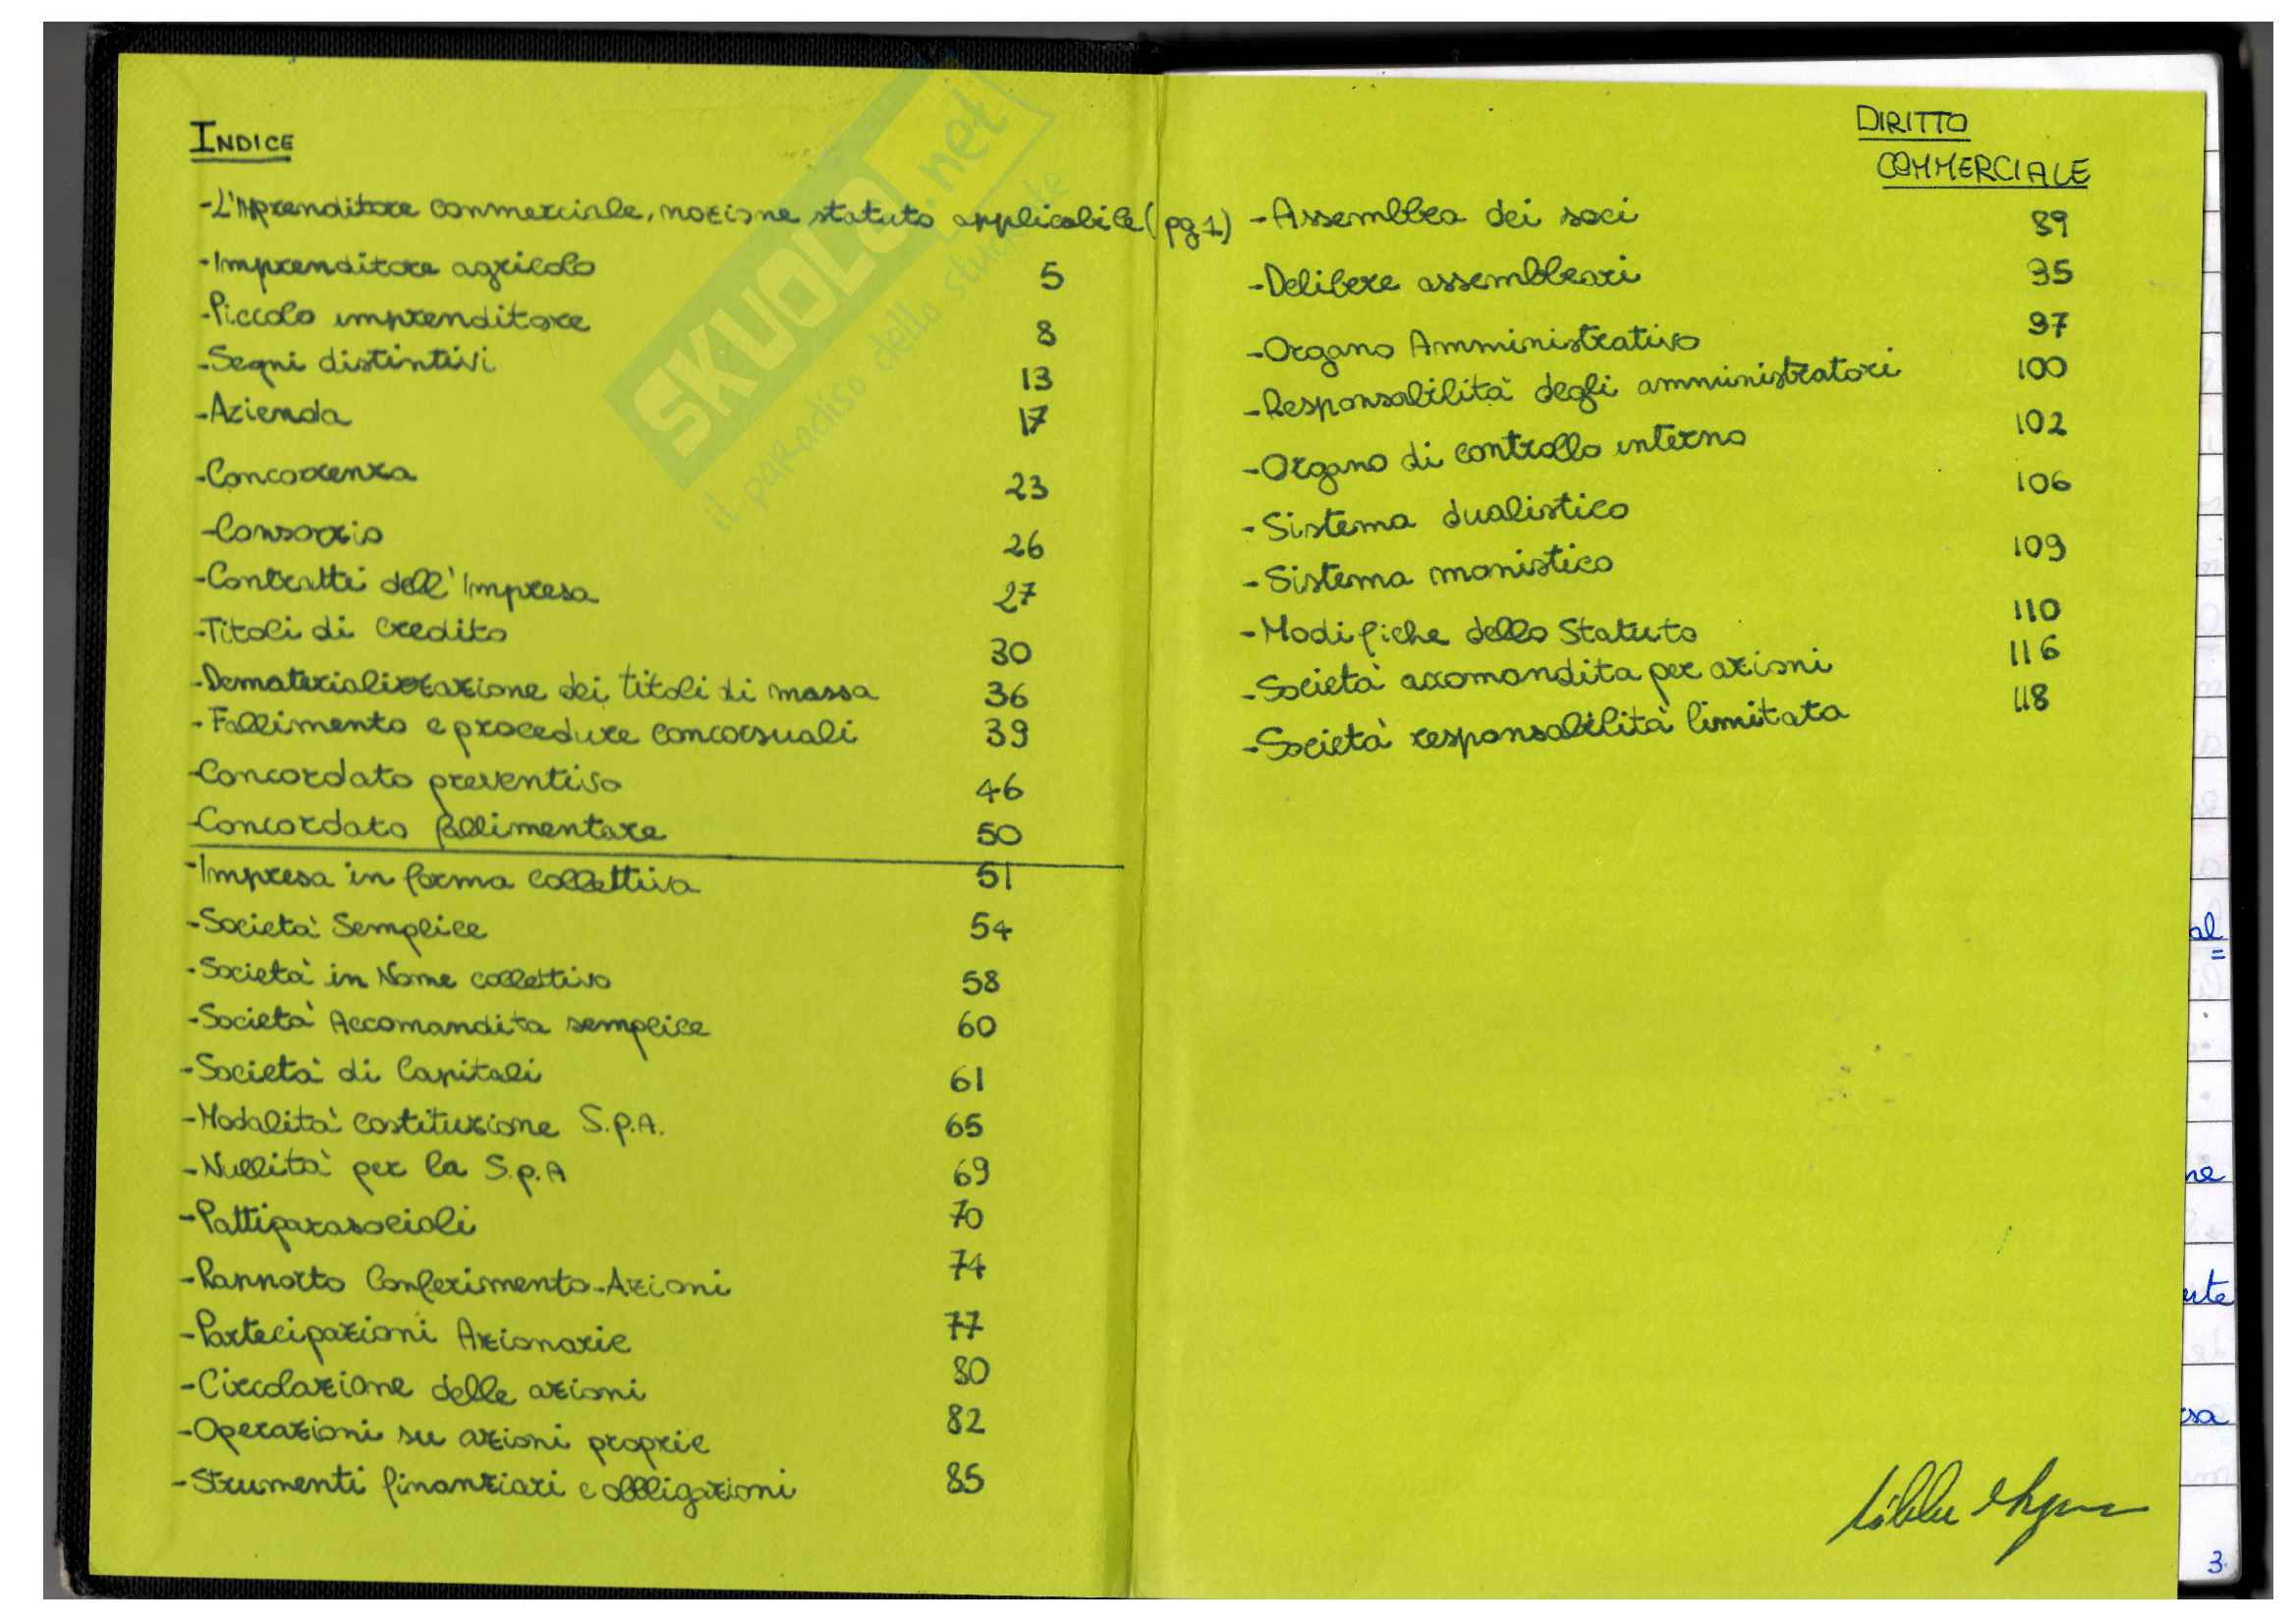 INDICE
-L'Imprenditore commerciale, nozione statuto applicabile (pg 1)
-Imprenditore agricolo 5
-Piccolo imprenditore 8
-Segni distintivi 13
-Azienda 17
-Concorrenza 23
-Consorzio 26
-Contratti dell'Impresa 27
-Titoli di credito 30
-Dematerializzazione dei titoli di massa 36
-Fallimento e procedure concorsuali 39
-Concordato preventivo 46
-Concordato fallimentare 50
-Impresa in forma collettiva 51
-Società Semplice 54
-Società in Nome collettivo 58
-Società Accomandita semplice 60
-Società di Capitali 61
-Modalità costituzione S.P.A. 65
-Nullità per la S.p.A 69
-Patti parasociali 70
-Rapporto Conferimento-Azioni 74
-Partecipazioni Azionarie 77
-Circolazione delle azioni 80
-Operazioni su azioni proprie 82
-Strumenti finanziari e obbligazioni 85
DIRITTO
COMMERCIALE
-Assemblea dei soci 89
-Delibere assembleari 95
-Organo Amministrativo 97
-Responsabilità degli amministratori 100
-Organo di controllo interno 102
-Sistema dualistico 106
-Sistema monistico 109
-Modifiche dello Statuto 110
-Società accomandita per azioni 116
-Società responsabilità limitata 118
SKUOLA.net
il paradiso dello studente
al
ne
ute
sa
3